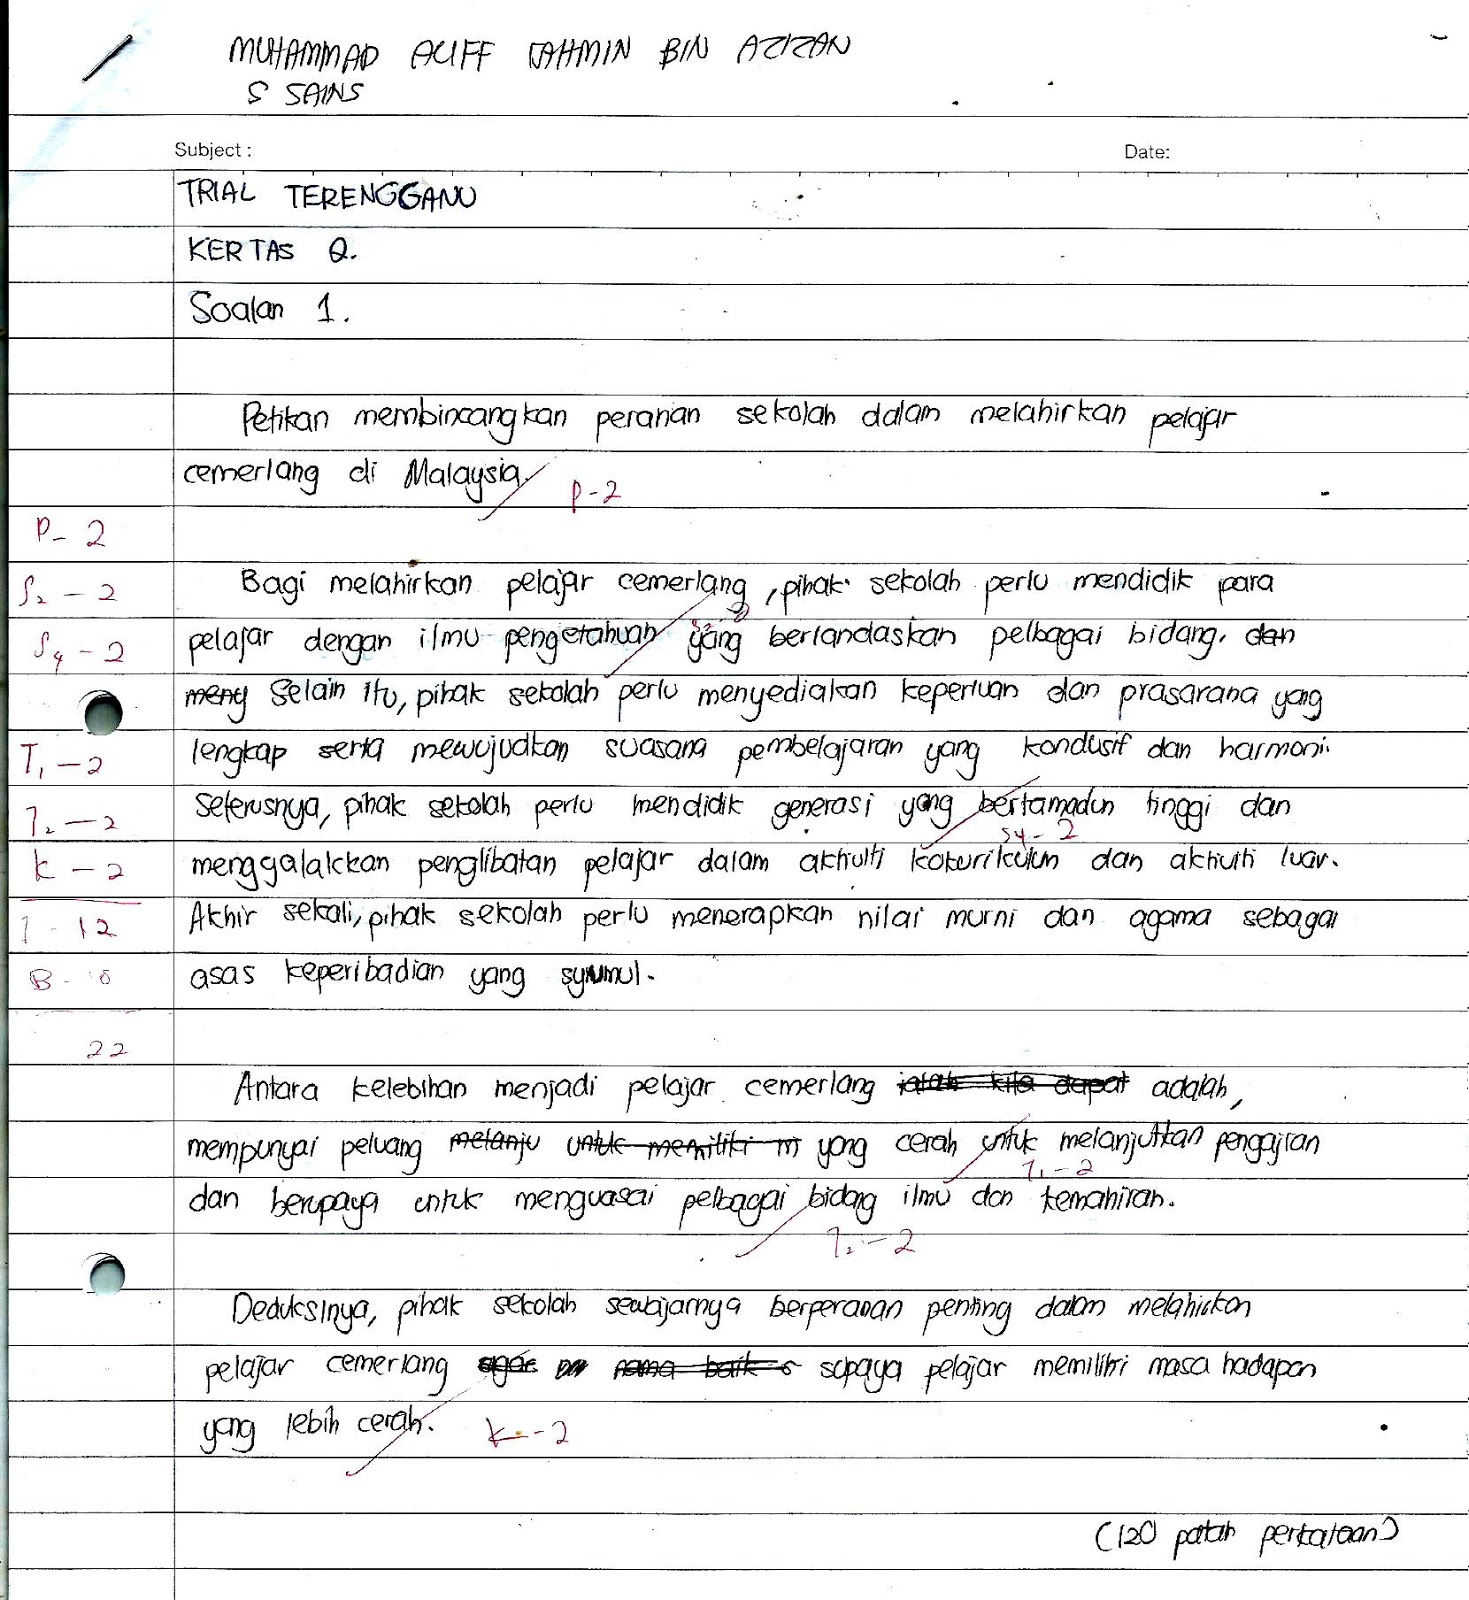 MUHAMMAD ALIFF TAHMIN BIN AZIZAN
5 SAINS
Subject :
Date:
TRIAL TERENGGANU
KERTAS 2.
Soalan 1.
Petikan membincangkan peranan sekolah dalam melahirkan pelajar
cemerlang di Malaysia.
P-2
P- 2
Bagi melahirkan pelajar cemerlang, pihak sekolah perlu mendidik para
S2 - 2
pelajar dengan ilmu pengetahuan yang berlandaskan pelbagai bidang. dan
S4 - 2
meny Selain itu, pihak sekolah perlu menyediakan keperluan dan prasarana yang
lengkap serta mewujudkan suasana pembelajaran yang kondusif dan harmoni.
T1 - 2
Seterusnya, pihak sekolah perlu mendidik generasi yang bertamadun tinggi dan
S4 - 2
T2 - 2
menggalakkan penglibatan pelajar dalam aktiviti kokurikulum dan aktiviti luar.
K - 2
Akhir sekali, pihak sekolah perlu menerapkan nilai murni dan agama sebagai
12
asas keperibadian yang syumul.
B -
22
Antara kelebihan menjadi pelajar cemerlang ialah kita dapat adalah,
mempunyai peluang melanju untuk memiliki m yang cerah untuk melanjutkan pengajian
T1 - 2
dan berupaya untuk menguasai pelbagai bidang ilmu dan kemahiran.
T2 - 2
Deduksinya, pihak sekolah sewajarnya berperanan penting dalam melahirkan
pelajar cemerlang agar nama baik s supaya pelajar memiliki masa hadapan
yang lebih cerah.
K - 2
(120 patah perkataan)